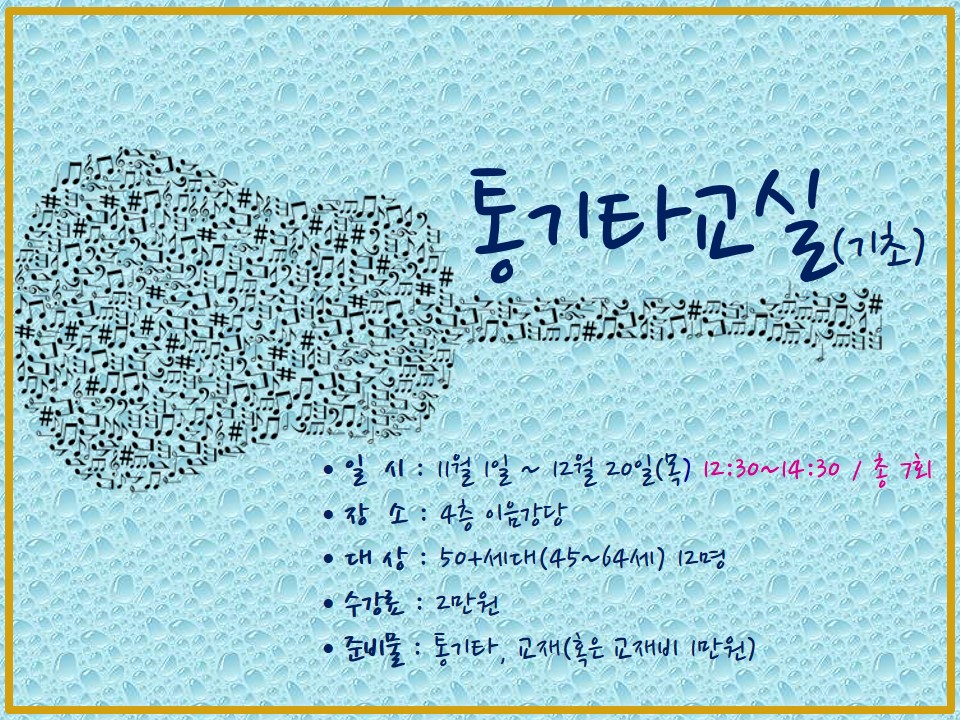 통기타교실(기초)
• 일 시 : 11월 1일 ~ 12월 20일(목) 12:30~14:30 / 총 7회
• 장 소 : 4층 이음강당
• 대 상 : 50+세대(45~64세) 12명
• 수강료 : 2만원
• 준비물 : 통기타, 교재(혹은 교재비 1만원)